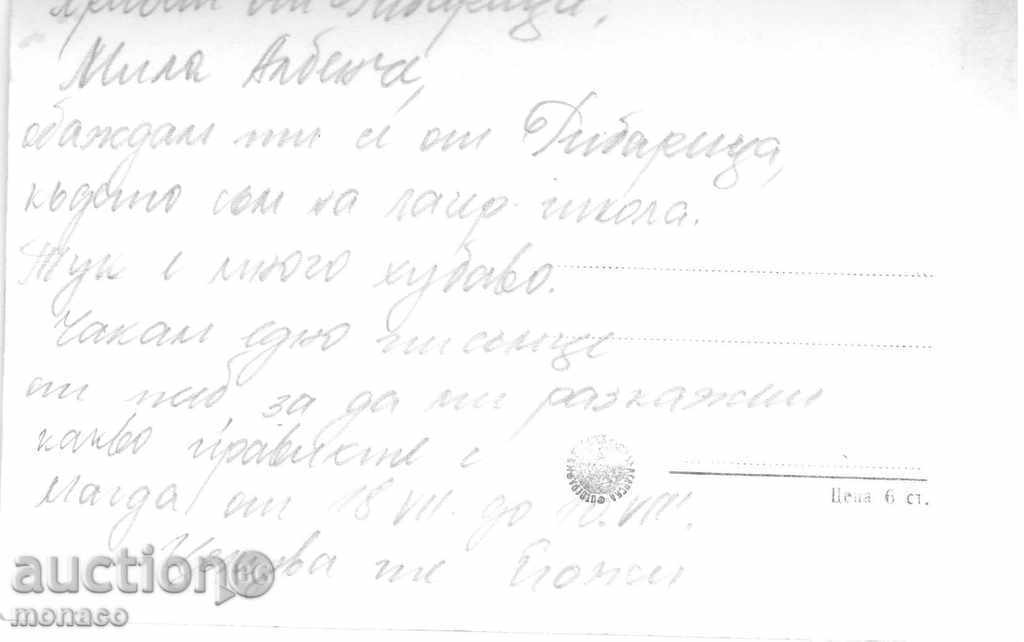 от Рибарица,
Мила Албена,
обаждам ти се от Рибарица,
където съм на лагер-школа.
Тук е много хубаво.
Чакам едно писъмце
от теб, за да ми разкажеш
какво правихте с
Магда от 18 VII. до 10. VIII.
Целува те
Цена 6 ст.
auction BG
monaco